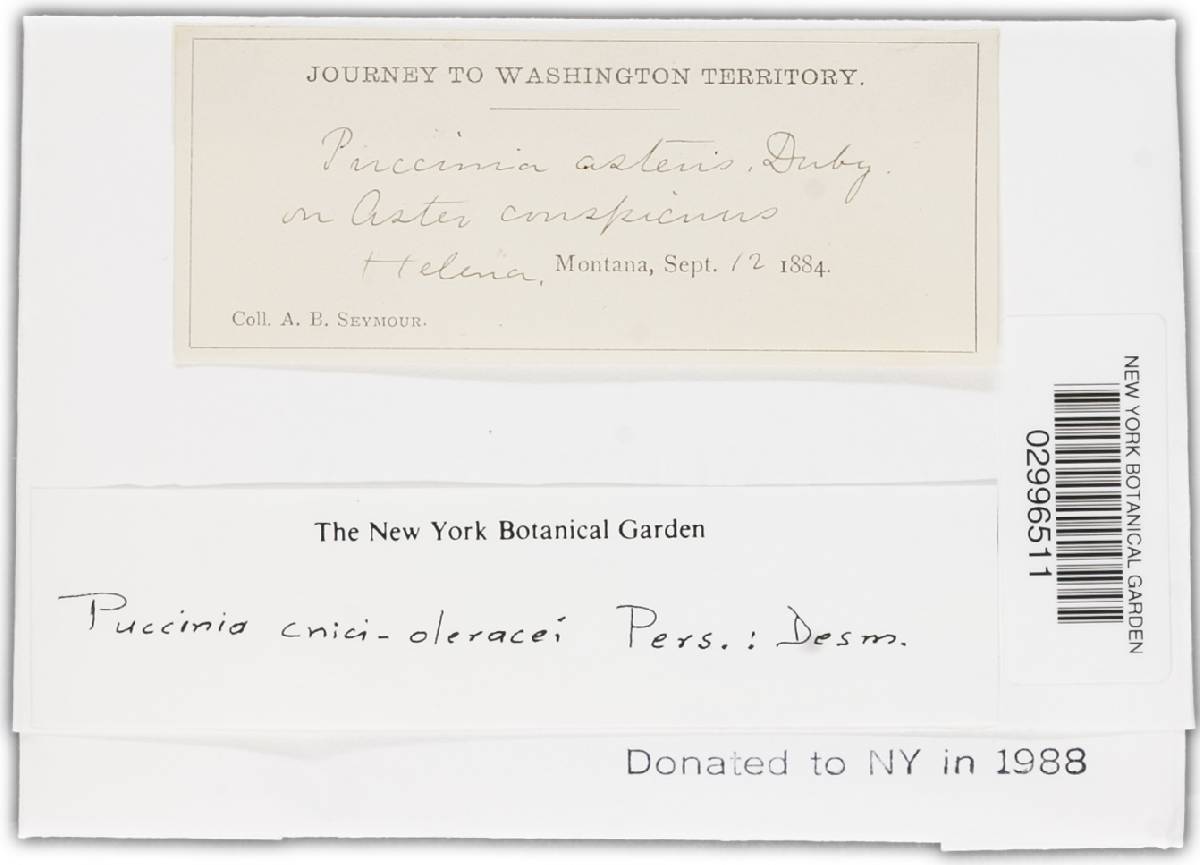 JOURNEY TO WASHINGTON TERRITORY.
Puccinia asteris, Duby.
on Aster conspicuus
Helena, Montana, Sept. 12 1884.
Coll. A. B. SEYMOUR.
NEW YORK BOTANICAL GARDEN
02996511
The New York Botanical Garden
Puccinia cnici-oleracei Pers. : Desm.
Donated to NY in 1988